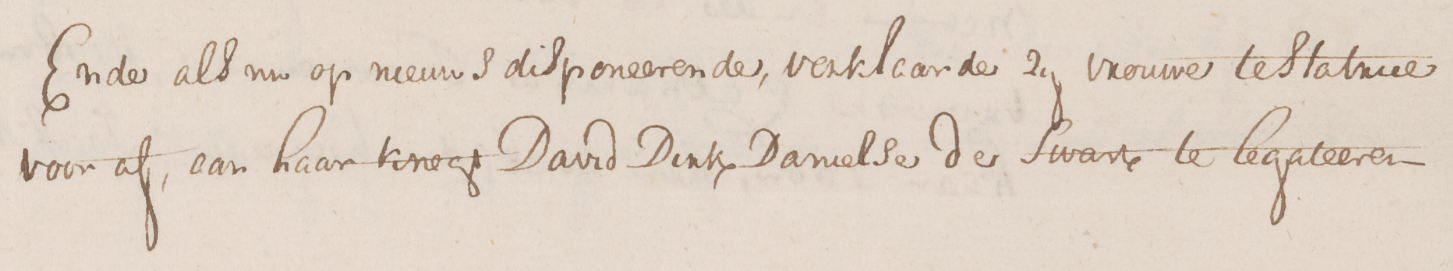 Ende als nu op nieuws disponeerende, verklaarde zij vrouwe testatrice
voor af, aan haar knegt David Dirkx Danielse de Swart te legateeren